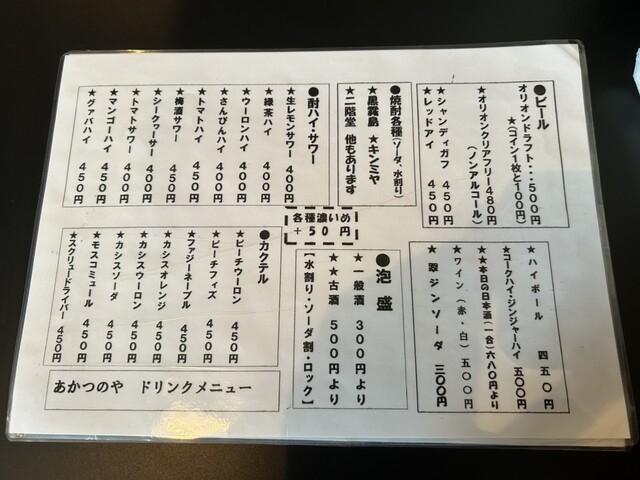 ●ビール
オリオンドラフト・・・500円
★(コイン1枚と100円)
★オリオンクリアフリー480円
(ノンアルコール)
★シャンディガフ 450円
★レッドアイ 450円
●焼酎各種(ソーダ、水割り)
★黒霧島 ★キンミヤ
★二階堂 他もあります
●酎ハイ・サワー
★生レモンサワー 400円
★緑茶ハイ 400円
★ウーロンハイ 400円
★さんぴんハイ 400円
★トマトハイ 450円
★梅酒サワー 450円
★シークヮーサー 450円
★トマトサワー 450円
★マンゴーハイ 450円
★グァバハイ 450円
各種濃いめ
+50円
★ハイボール 四五〇円
★コークハイ・ジンジャーハイ 五〇〇円
★★本日の日本酒(一合)六八〇円より
★ワイン(赤・白)五〇〇円
★翠ジンソーダ 三〇〇円
●泡盛
★一般酒 300円より
★★古酒 500円より
【水割り・ソーダ割・ロック】
●カクテル
★ピーチウーロン 450円
★ピーチフィズ 450円
★ファジーネーブル 450円
★カシスオレンジ 450円
★カシスウーロン 450円
★カシスソーダ 450円
★モスコミュール 450円
★スクリュードライバー 450円
あかつのや ドリンクメニュー